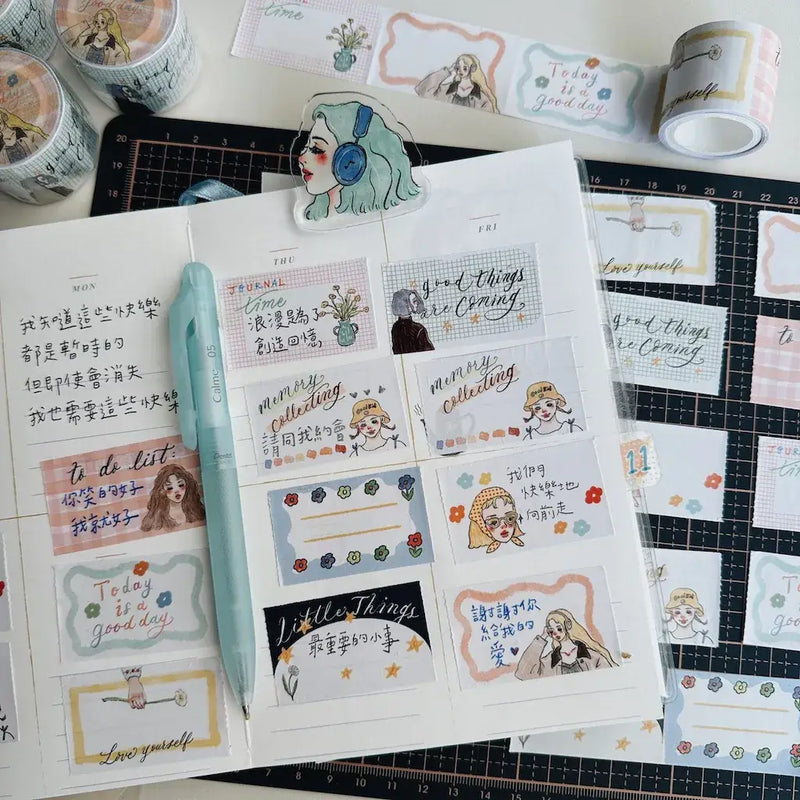 good day
time
Today
is a
good day
Love yourself
20
19
18
16
17
18
19
20
21
22
23
MON
THU
FRI
我知道這些快樂
都是暫時的
但即使會消失
我也需要這些快樂
to do list:
你笑的好
我就好
Today
is a
good day
Love yourself
Calme 05
Pentel
JOURNAL
time
浪漫是為了
創造回憶
memory
collecting
請同我約會
Little Things
最重要的小事
good things
are Coming
memory
collecting
我們
快樂地
向前走
謝謝你
給我的
愛
Love yourself
good things
are Coming
11
to
JOURNAL
time
Today
is a
good day